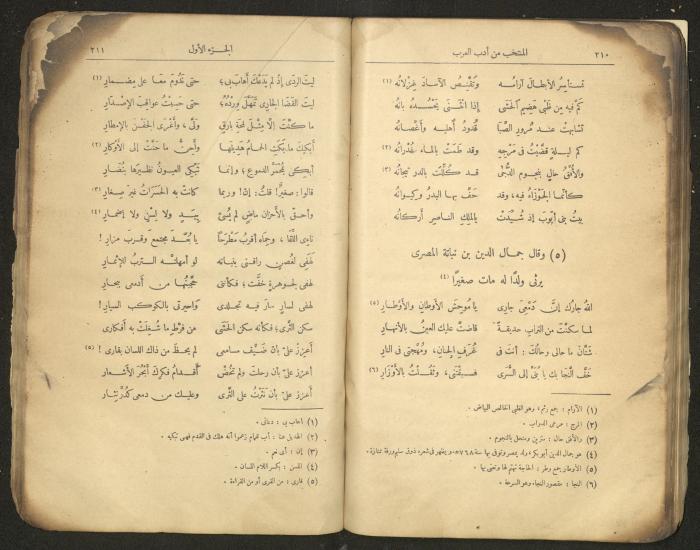 ٢١٠
المنتخب من أدب العرب
تستأسِرُ الأبطالَ آرامُه وتَقْنِصُ الآسادَ غِزْلانُه (١)
كم فيه من ظَبْىٍ هَضِيمِ الحَشَى إذا انْثَنَى يَحْسُدُه بانُه
تشابهتْ عند مُرورِ الصَّبا قُدودُ أهلِه وأغْصانُه
كم ليلةٍ قضَّيْتُ فى مَرْجِه وقد طَمَتْ بالماء غُدْرانُه (٢)
والأُفْقُ حالٍ بنجومِ الدُّجَى قد كُلِّلَتْ بالدر تيجانُه (٣)
كأنما الجَوْزَاءُ فيه، وقد حَفَّ بها البدرُ وكيوانُه
بيتُ بنى أيّوبَ إذ شُيِّدَتْ بالملِكِ الناصرِ أركانُه
(٥) وقال جمال الدين بن نباتة المصرى
يرثى ولدًا له مات صغيرًا (٤)
اللهُ جارُك إنّ دَمْعِىَ جارِى يا مُوحِشَ الأوطانِ والأَوْطارِ (٥)
لما سكنْتَ من الترابِ حديقةً فاضتْ عليك العينُ بالأنهارِ
شَتَّانَ ما حالى وحالُكَ: أنتَ فى غُرَفِ الجِنانِ، ومُهْجتى فى النارِ
خَفَّ النَّجَا بك يا بُنَىَّ إلى السُّرَى فسبقْتَنى، وثَقُلْتُ بالأَوْزارِ (٦)
(١) الآرام: جمع رئم، وهو الظبى الخالص البياض.
(٢) المرج: مرعى الدواب.
(٣) والأفق حال: متزين ومتحل بالنجوم
(٤) هو جمال الدين أبو بكر، ولد بمصر وتوفى بها سنة ٧٦٨ﻫ، ويظهر فى شعره ذوق سليم ورقة ممتازة.
(٥) الأوطار جمع وطر: الحاجة تهتم لها وتعنى بها.
(٦) النجا: مقصور النجاء وهو السرعة.
الجزء الأول
٢١١
ليتَ الردَى إذْ لم يَدَعْكَ أهابَ بى؛ حتى نَدُومَ معًا على مِضمارِ (١)
ليتَ القضا الجارى تَمَهَّلَ وِرْدُهُ؛ حتى حَسِبْتُ عواقبَ الإصْدارِ
ما كنْتَ إلّا مِثْلَ لمحةِ بارقٍ ولَّى، وأغْرَى الجَفْنَ بالإمطارِ
أبكِيكَ ما بَكَتِ الحمامُ هَدِيلَها وأحِنُّ ما حَنَّتْ إلى الأوكارِ (٢)
أبكى بمُحْمَرِّ الدموعِ؛ وإنما تَبْكِى العيونُ نظيرَها بنُضارِ
قالوا: صغيرٌ! قلتُ: إنّ! وربما كانت به الحَسَراتُ غيرَ صغارِ (٣)
وأحقُّ بالأحزانِ ماضٍ لم يُسِئْ بِيَدٍ ولا لِسْنٍ ولا إضمارِ (٤)
نائِى اللِّقَا، وحِمَاه أقربُ مَطْرَحًا يا بُعْدَ مجتمعٍ وقربَ مزارِ!
لَهْفِى لغُصنٍ راقنى بنباته لو أمهلتْهُ التربُ للإثمارِ
لَهْفِى لجوهرةٍ خَفَتْ؛ فكأننى حجَّبْتُها من أدمعى ببحارِ
لهفى لسارٍ حارَ فيه تجلُّدى واحيرتى بالكوكبِ السيارِ!
سكن الثرَى؛ فكأنه سكن الحَشَى من فَرْطِ ما شُغِلَتْ به أفكارى
أعزِزْ علىَّ بأنّ ضَيْفَ مسامعى لم يحظَ من ذاك اللسانِ بقارِى! (٥)
أعزِزْ علىَّ بأن رحلتَ ولم تَخُضْ أقدامُ فكرِكَ أبْحُرَ الأشعارِ
أعزِزْ علىَّ بأن نَثَرْتُ على الثَّرَى وعليك من دمعى كَدُرِّ نِثارِ
(١) أهاب بى: دعانى.
(٢) الهديل هنا: أب حمام زعموا أنه هلك فى القدم فهى تبكيه.
(٣) إن: أى نعم.
(٤) اللسن: بكسر اللام اللسان.
(٥) قارى: من القرى أو من القراءة.